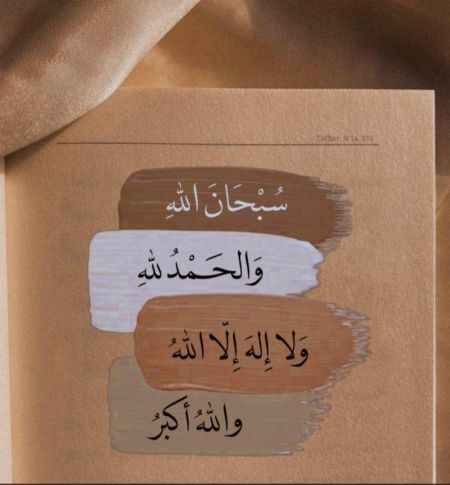 Twitter: @1a_510
سُبْحَانَ اللهِ
وَالحَمْدُ للهِ
وَلا إِلهَ إِلّا اللهُ
واللهُ أكبرُ